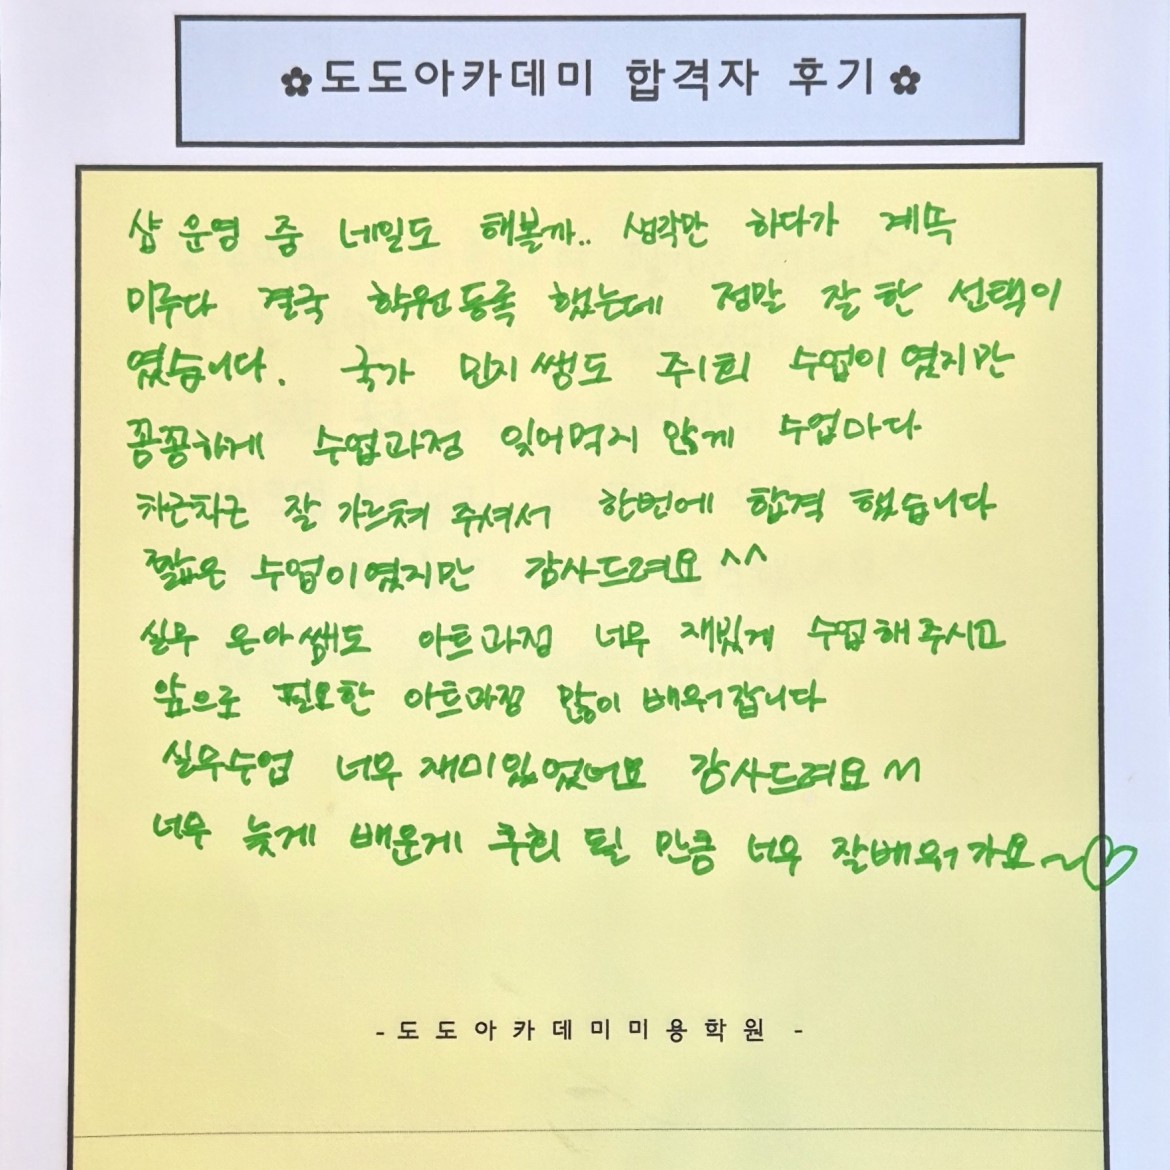 ✿도도아카데미 합격자 후기✿
샵 운영 중 네일도 해볼까.. 생각만 하다가 계뜩
미루다 결국 학원등록 했는데 정말 잘 한 선택이
였습니다. 국가 민지쌩도 주1회 수업이였지만
꼼꼼하게 수업과정 잊어먹지 않게 수업마다
차근차근 잘 가르쳐 주셔서 한번에 합격 했습니다
짧은 수업이였지만 감사드려요 ^^
실무 은아쌤도 아트과정 너무 재밌게 수업해주시고
앞으로 필요한 아트과정 많이 배워갑니다
실무수업 너무 재미있었어요 감사드려요 ^^
너무 늦게 배운게 후회 될 만큼 너무 잘배워가요~♡
- 도도아카데미미용학원 -